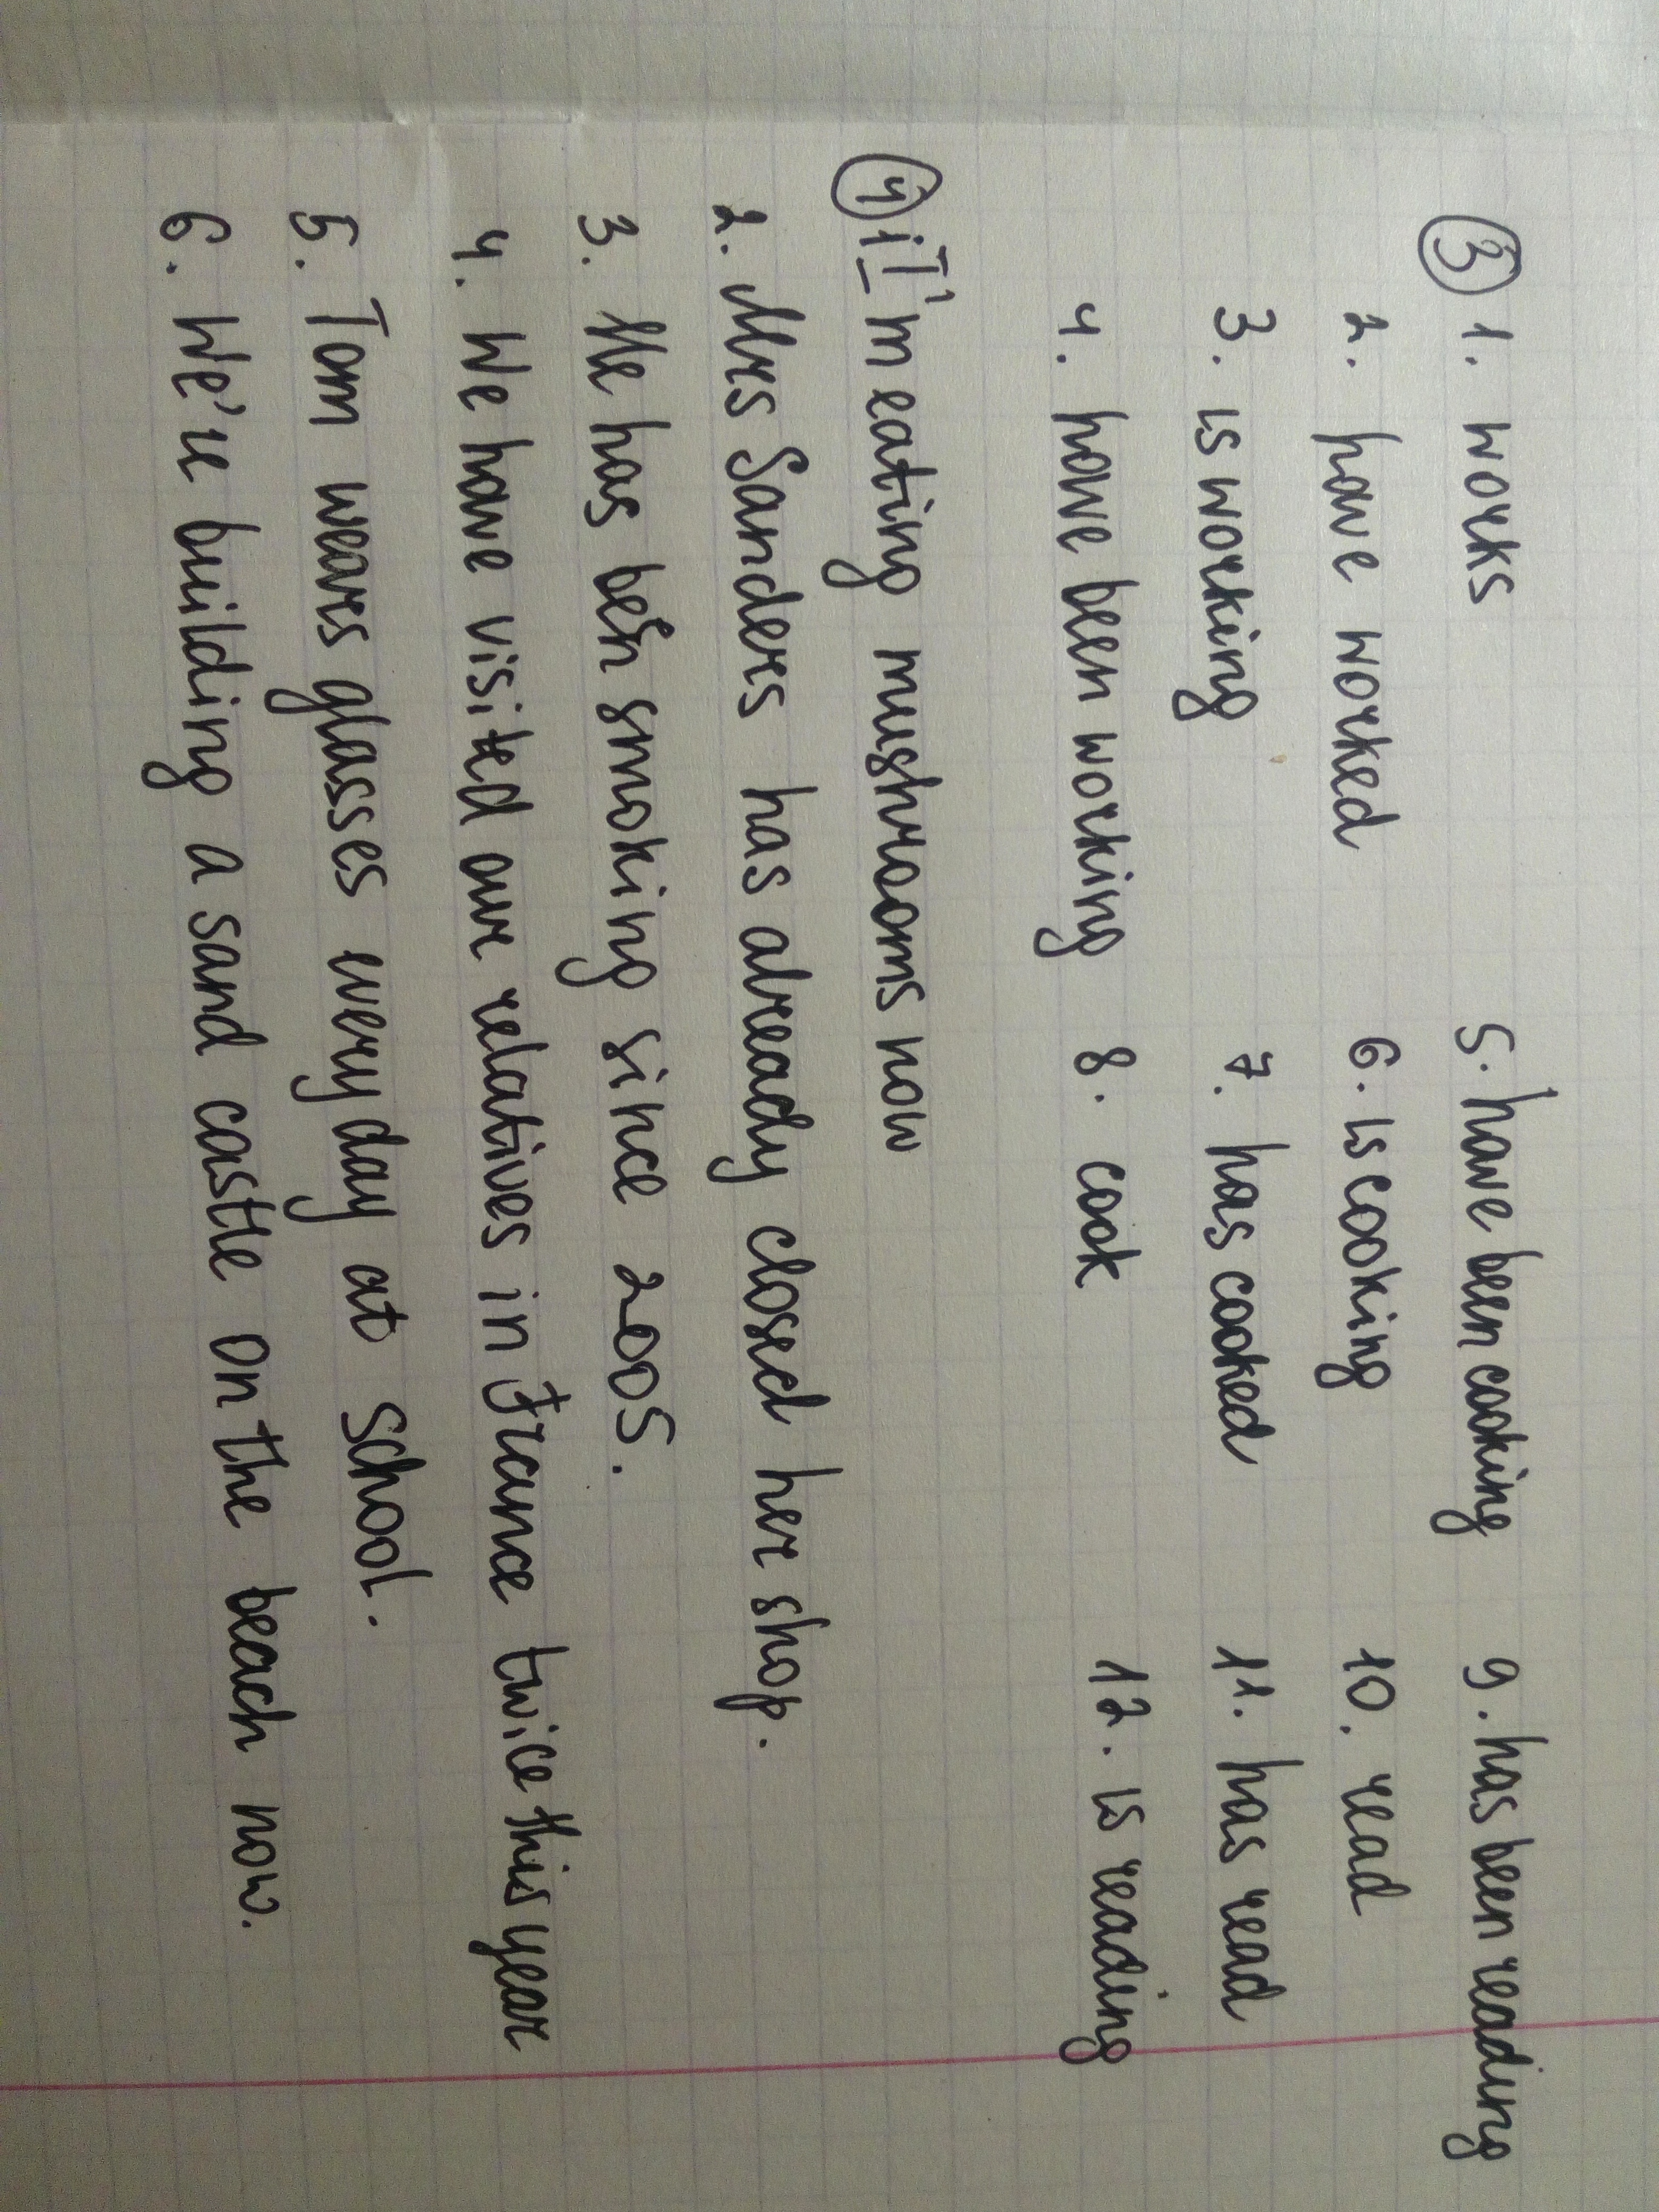 ③ 1. works 5. have been cooking 9. has been reading
2. have worked 6. is cooking 10. read
3. is working 7. has cooked 11. has read
4. have been working 8. cook 12. is reading
④ 1. I'm eating mushrooms now
2. Mrs Sanders has already closed her shop.
3. He has been smoking since 2005.
4. We have visited our relatives in France twice this year
5. Tom wears glasses every day at school.
6. We're building a sand castle on the beach now.